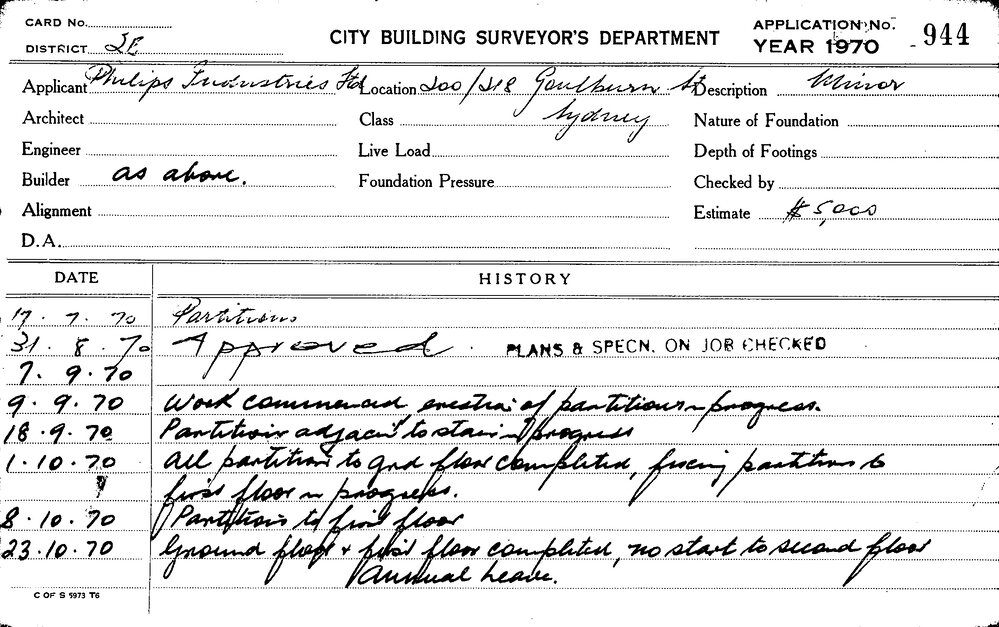 CARD No.
DISTRICT 2E
CITY BUILDING SURVEYOR'S DEPARTMENT
APPLICATION No.
YEAR 1970 - 944
Applicant Philips Industries Ltd Location 200/218 Goulburn St Description Minor
Architect Class Sydney Nature of Foundation
Engineer Live Load Depth of Footings
Builder as above. Foundation Pressure Checked by
Alignment Estimate $5,000
D.A.
DATE HISTORY
17. 7. 70 Partitions
31. 8. 70 Approved. PLANS & SPECN. ON JOB CHECKED
7. 9.70
9. 9.70 Work commenced, erection of partitions in progress.
18.9.70 Partitions adjacent to stairs in progress
1.10.70 All partitions to grd floor completed, fixing partitions to
first floor in progress.
8.10.70 Partitions to first floor
23.10.70 Ground floor & first floor completed, no start to second floor
Annual Leave.
C OF S 5973 T6